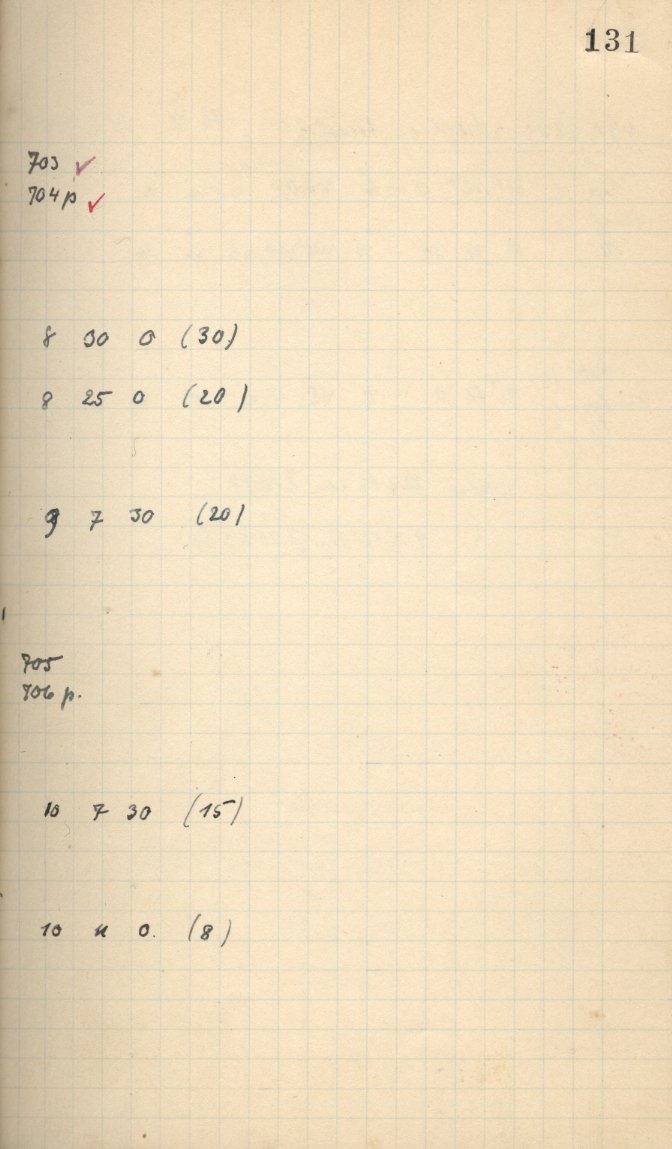 131
703 ✓
704 p ✓
8 30 0 (30)
8 25 0 (20)
9 7 30 (20)
705
706 p.
10 7 30 (15)
10 11 0. (8)